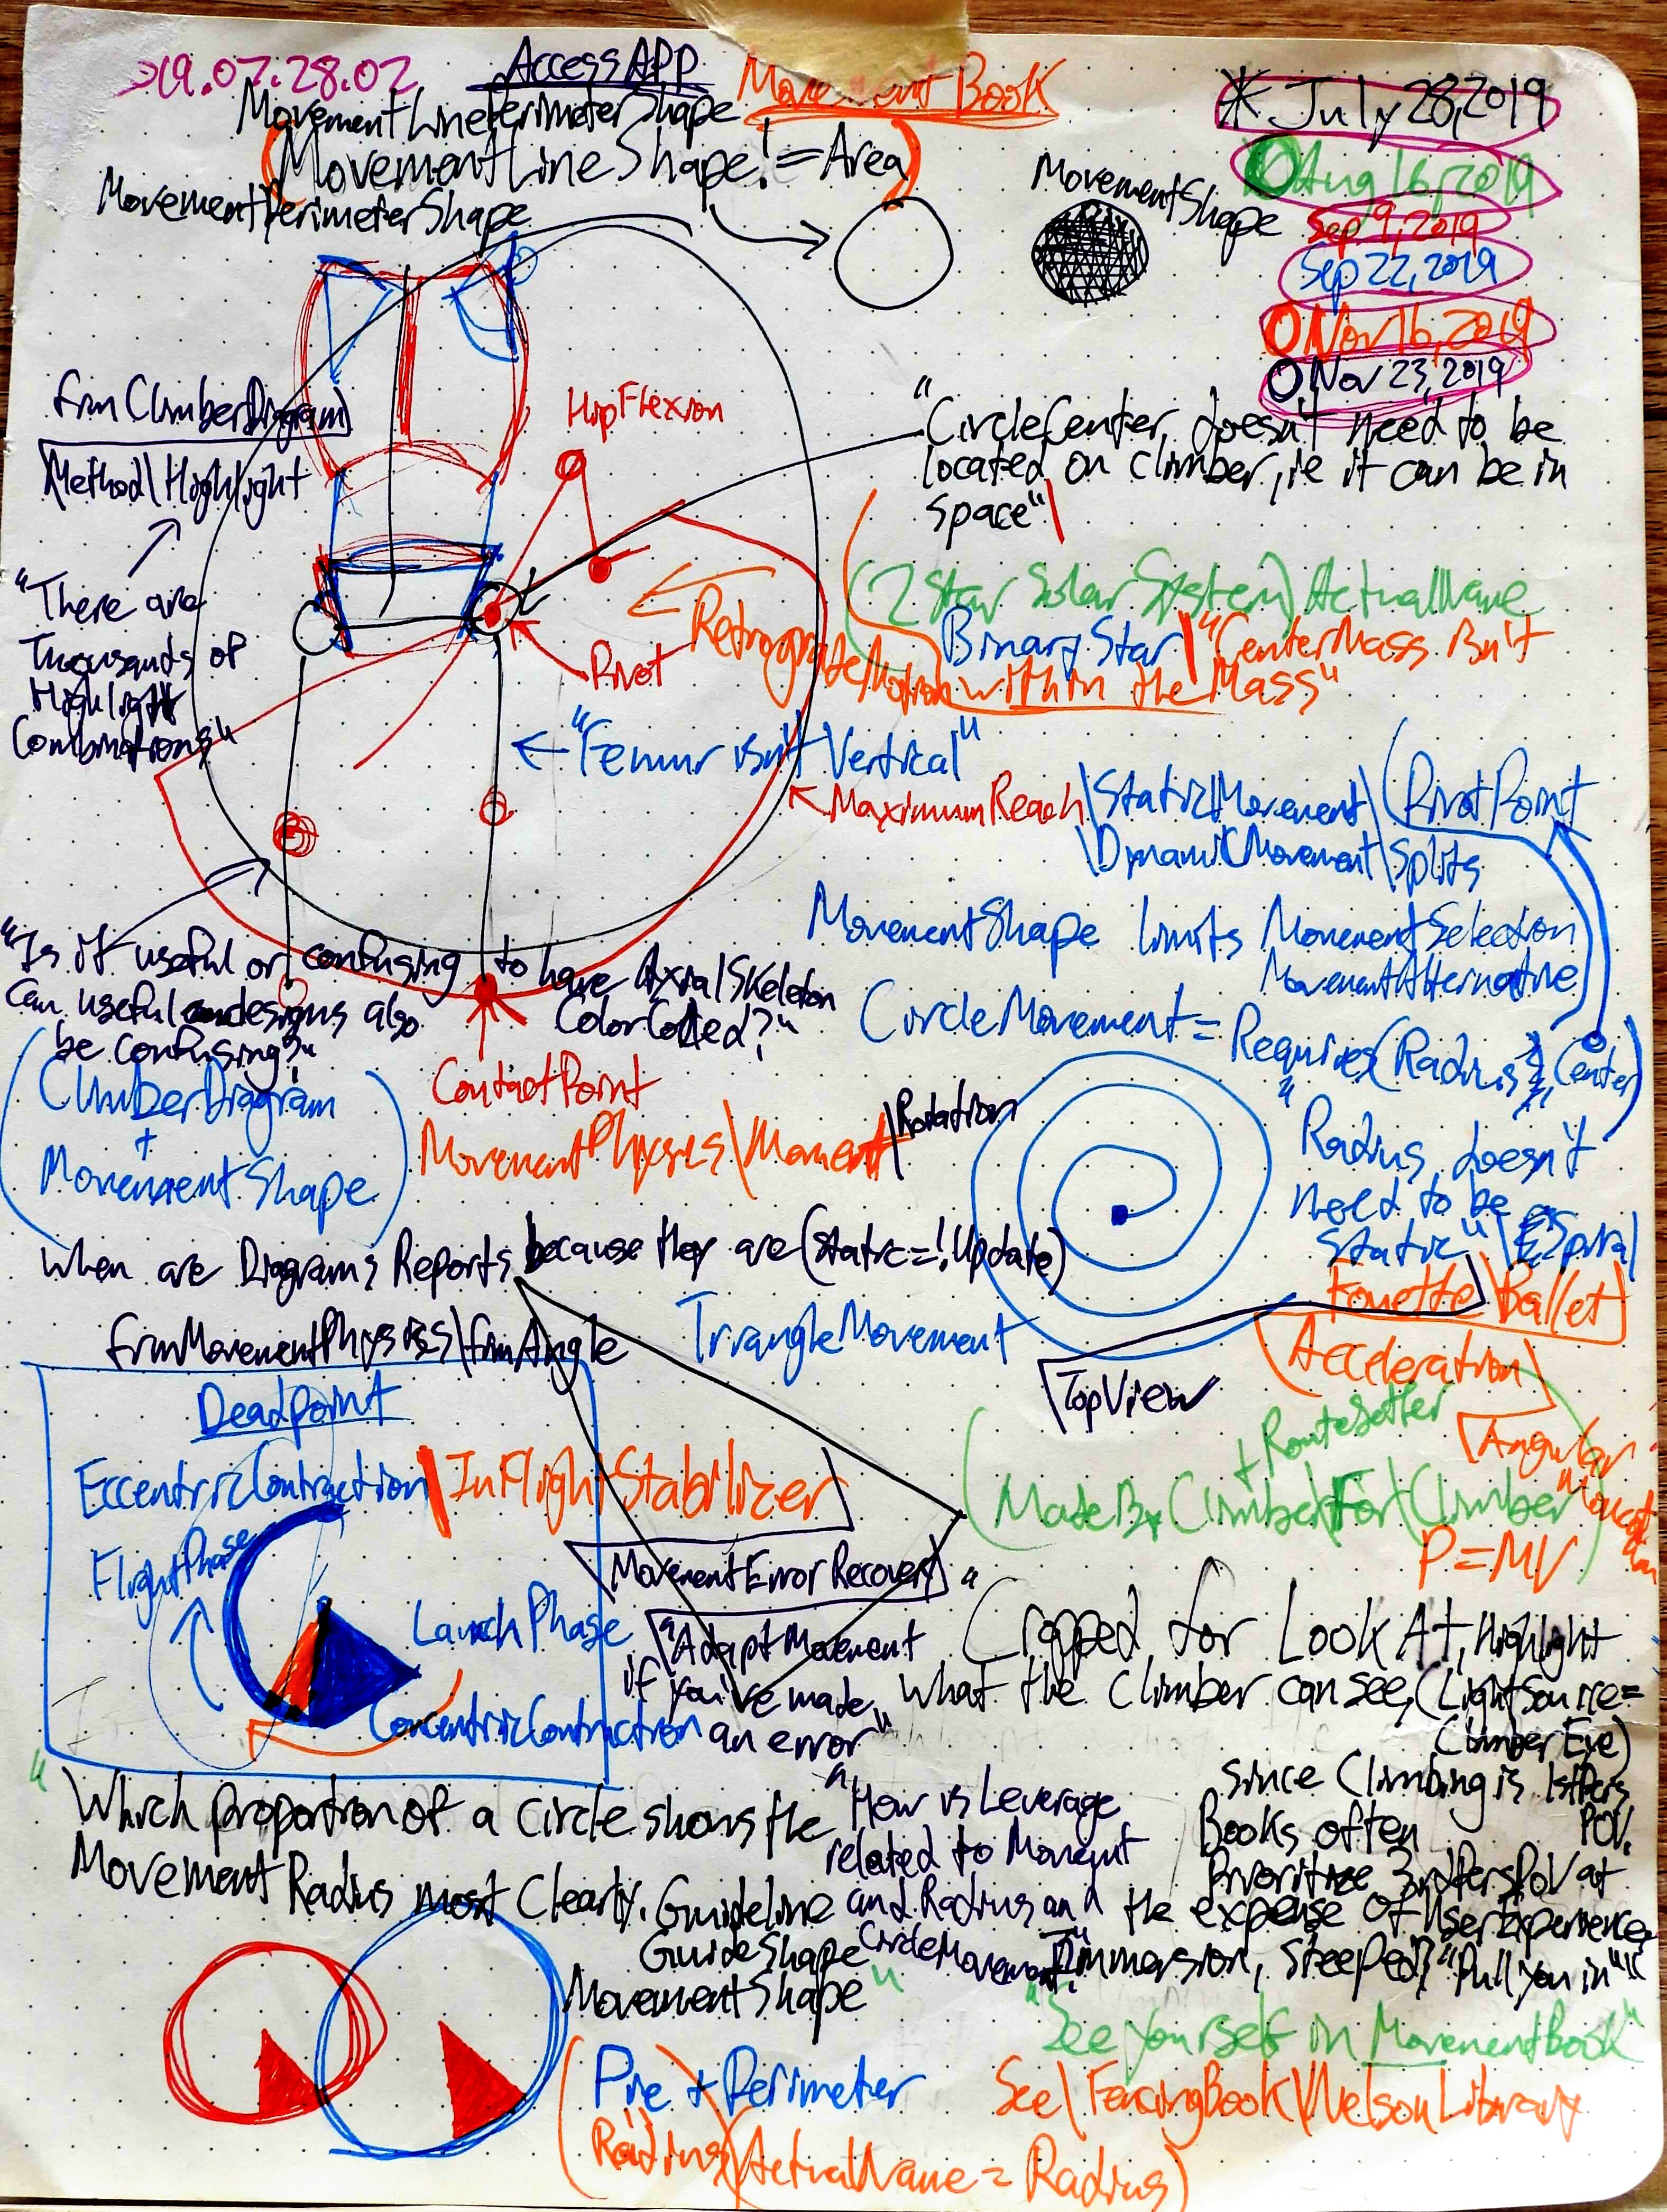 19.07.28.02
AccessAPP
Movement Book
* July 28, 2019
Aug 16, 2019
Sep 9, 2019
Sep 22, 2019
Nov 16, 2019
Nov 23, 2019
MovementLinePerimeterShape
(MovementLineShape != Area)
MovementPerimeterShape
MovementShape
frmClimberDiagram)
Method\Highlight
"There are
Thousands of
Highlight
Combinations"
HipFlexion
Pivot
"CircleCenter doesn't need to be
located on climber, ie it can be in
space"\
(2 Star Solar System) ActualName
Binary Star\"CenterMass isn't
within the Mass"
Retrograde Motion
← "Femur isn't Vertical"
MaximumReach\StaticMovement\(PivotPoint
\DynamicMovement\Splits
MovementShape limits MovementSelection
MovementAlternative
CircleMovement = Requires(Radius & Center)
"Is it useful or confusing to have AxialSkeleton
ColorCoded?"
Can useful designs also
be confusing?"
(ClimberDiagram
+
MovementShape)
ContactPoint
MovementPhysics\Moment\Rotation
"Radius doesn't
need to be
static"\Spiral
Fouette\Ballet
Acceleration
Angular
Momentum
P=MV
When are Diagrams Reports because they are (static=!Update)
TriangleMovement
TopView
frmMovementPhysics\frmAngle
Deadpoint
EccentricContraction\InFlightStabilizer
FlightPhase
LaunchPhase
ConcentricContraction
+RouteSetter
(MadeByClimber\ForClimber)
MovementErrorRecovery
"AdaptMovement
if you've made
an error"
"Cropped for LookAt, Highlight
what the Climber can see, (LightSource=
ClimberEye)
since Climbing is 1stPers
POV.
Books often
Prioritize 3rdPersPOV at
the expense of UserExperience,
Immersion, Steeped, "Pull you in"
"Which proportion of a circle shows the
Movement Radius most Clearly. Guideline
GuideShape
MovementShape"
"How is Leverage
related to Moment
and Radius and
CircleMovement?"
"See yourself in MovementBook"
See\FencingBook\NelsonLibrary
(Pie + Perimeter
Radius)(ActualName = Radius)